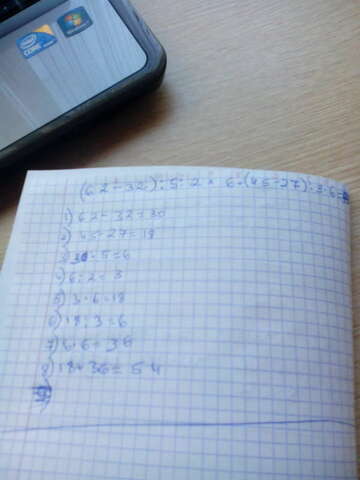 intel
CORE
Windows 7
(62-32):5:2×6+(45-27):3·6=
1) 62-32=30
2) 45-27=18
3) 30:5=6
4) 6:2=3
5) 3·6=18
6) 18:3=6
7) 6·6=36
8) 18+36=54